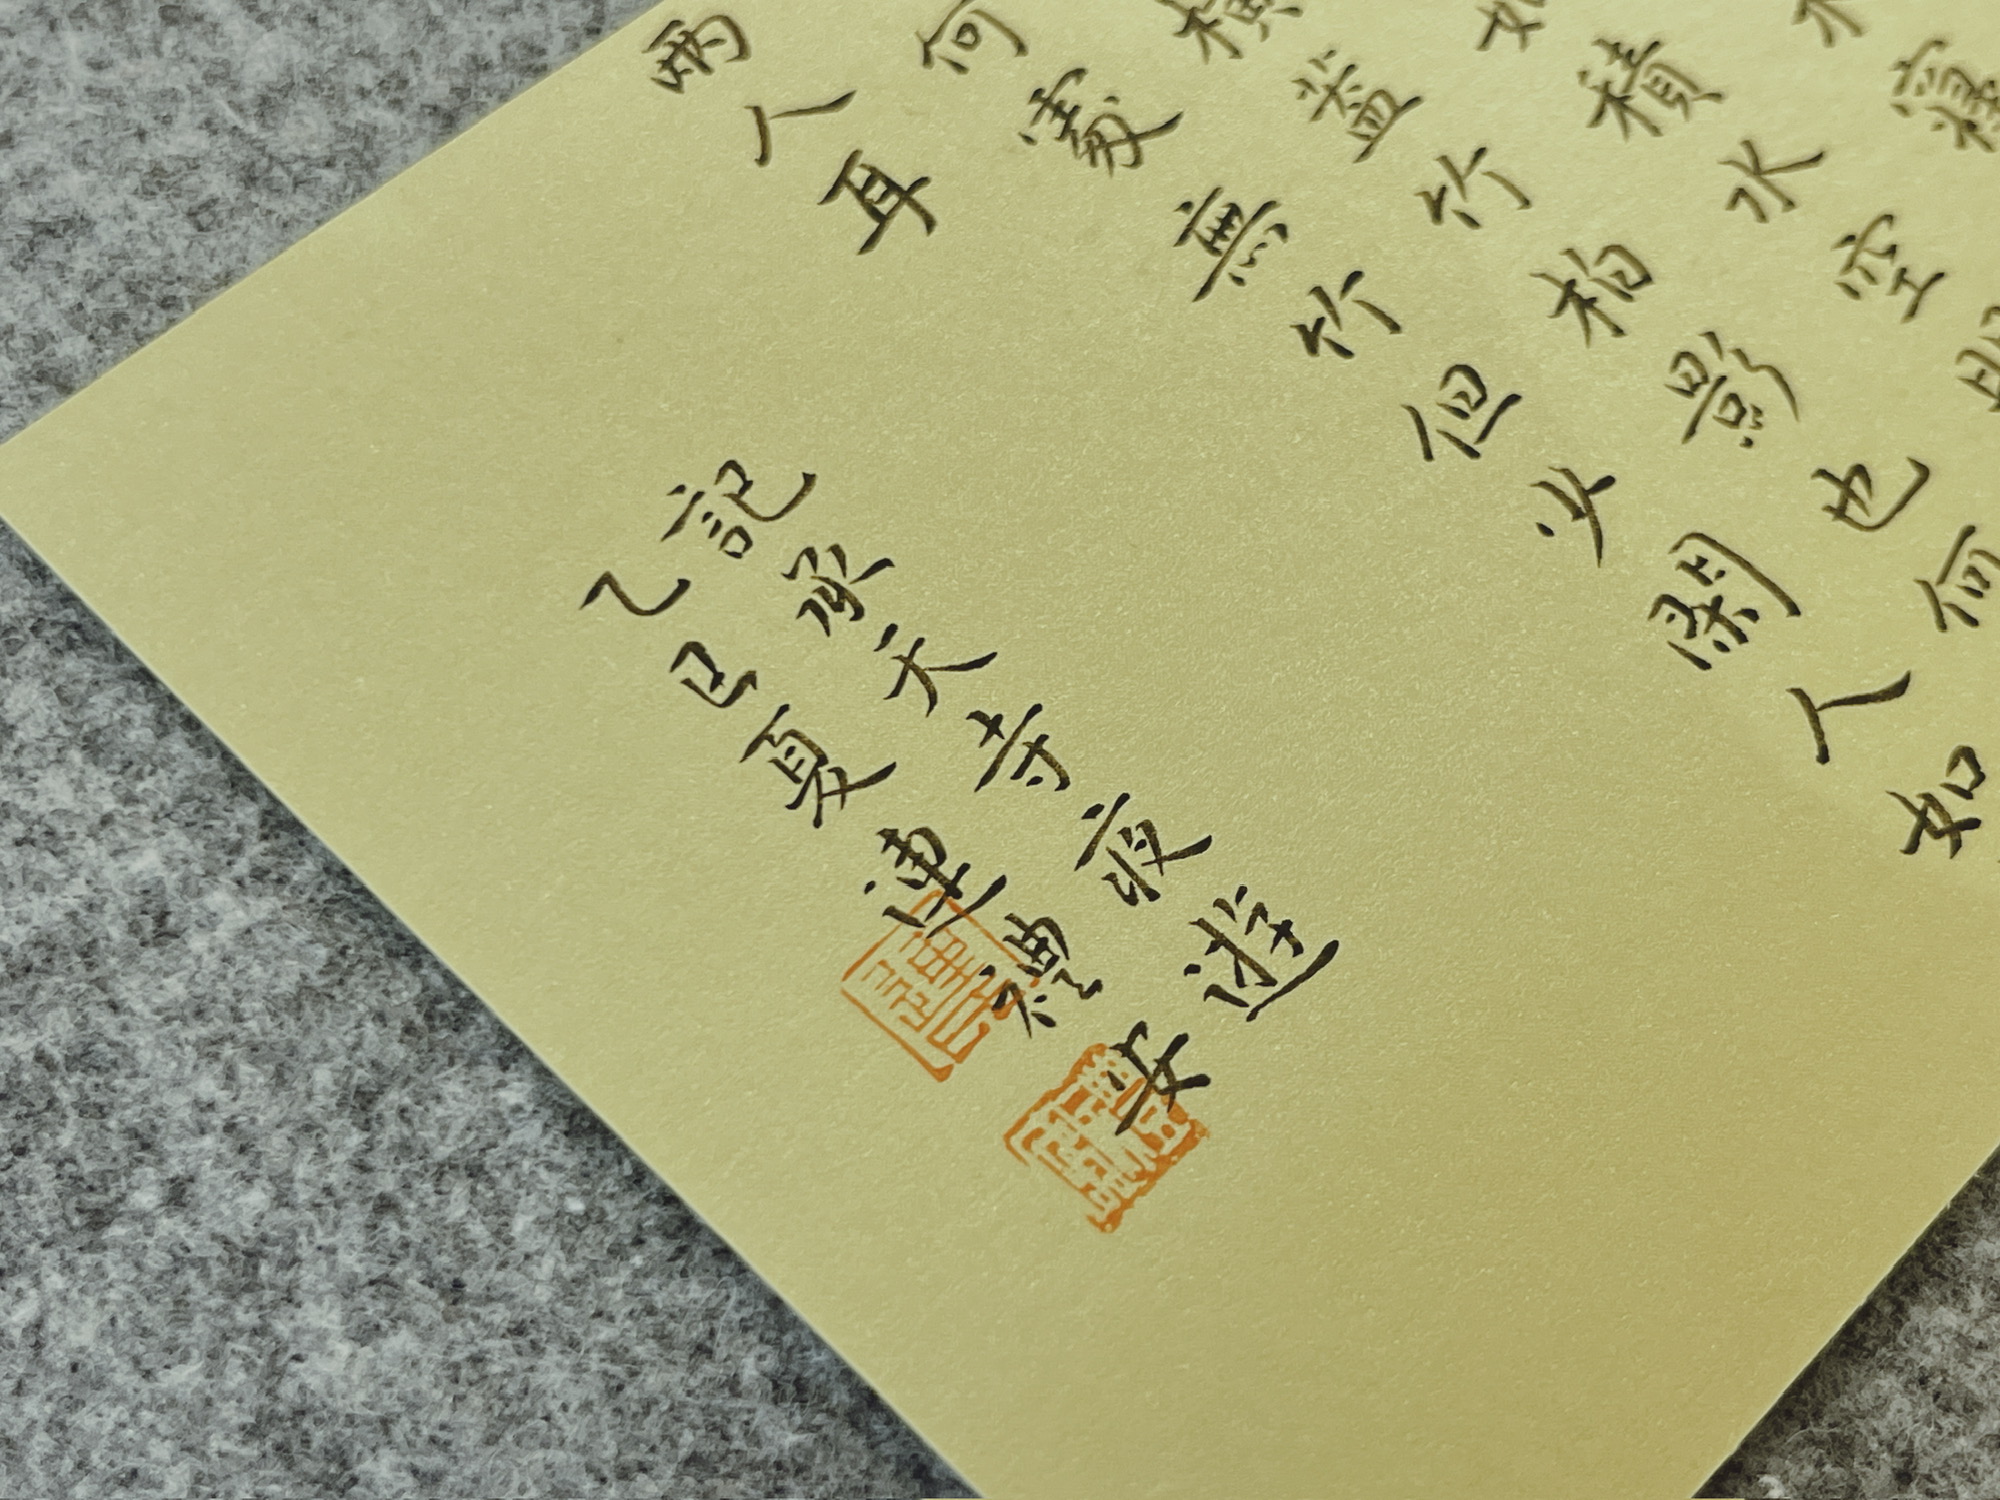 寢
如積水空明
橫蓋竹柏影也何
何處無竹但少閑人如
兩人耳
記承天寺夜遊
乙巳夏連禮安